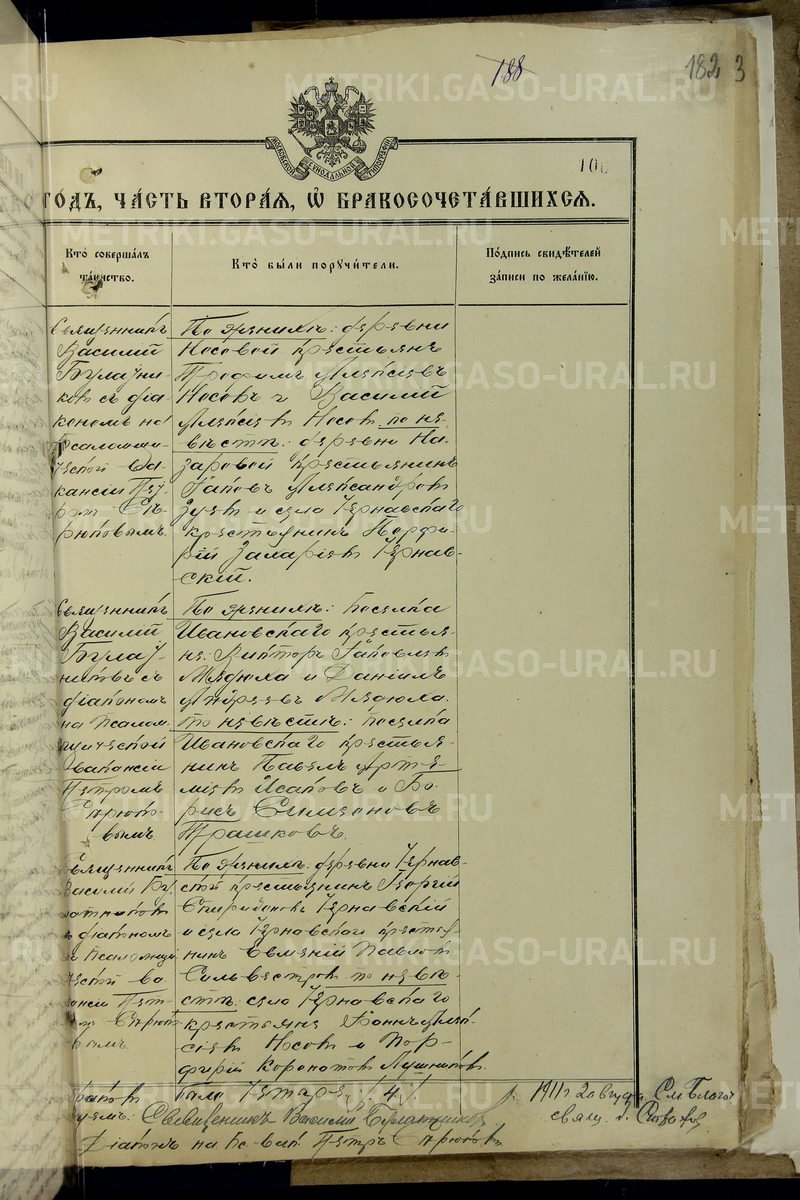 188
182 3
106
ГОДЪ, ЧАСТЬ ВТОРАЯ, Ѡ БРАКОСОЧЕТАВШИХСЯ.
Кто совершалъ таинство.
Кто были поручители.
Подпись свидѣтелей записи по желанію.
Священникъ
Василій
Булатни-
ковъ съ діа
кономъ на
Псаломщи-
ческой Ва-
кансіи Пет-
ромъ
По женихѣ: деревни
Носовой крестьяне
Трофимъ Алексѣевъ
Носовъ и Василій
Алексѣевъ Носовъ по не-
вѣстѣ: деревни На-
заровой крестьянинъ
Іаковъ Александровъ
Зуевъ и села Чернавскаго
крестьянинъ Порфи-
рій Захаріевъ Чернав-
скій.
Священникъ
Василій
Булат-
никовъ съ
діакономъ
на Псалом-
щической
Вакансіи
Петромъ
По женихѣ: поселка
Ивановскаго крестья-
не: Викторъ Іаковлевъ
и Даніилъ
Андреевъ
по невѣстѣ: поселка
Ивановскаго крестья-
нинъ Павелъ Арте-
міевъ Исаковъ и Бо-
рисъ Симеоновъ
Трашковъ.
Священникъ
Василій Бу-
латниковъ
съ діакономъ
на Псаломщи-
ческой ва-
кансіи Пет-
ромъ
По женихѣ: деревни Чернав-
ской крестьянинъ Георгій
Спиридоновъ Чернавскій
и села Чернавскаго крестья-
нинъ Евгеній Павловъ
Сильвестровъ по невѣ-
стѣ: села Чернавскаго
крестьяне Іоаннъ Алек-
сѣевъ Носовъ и Пор-
фирій Лушниковъ.
браковъ было четыре /4/.
1911 г. 2 августа См. Благоч.
свящ.
Священникъ Василій Булатниковъ
Діаконъ на Пс. вак. Петръ
METRIKI.GASO-URAL.RU